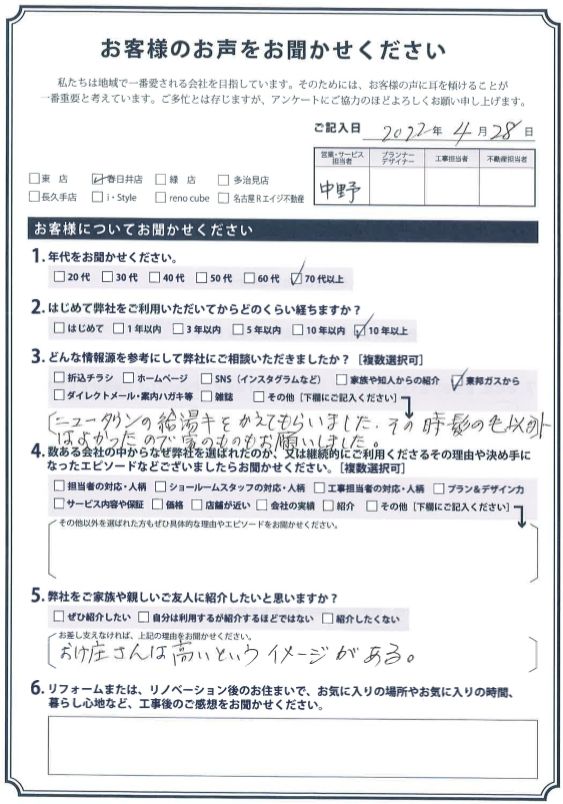 お客様のお声をお聞かせください
私たちは地域で一番愛される会社を目指しています。そのためには、お客様の声に耳を傾けることが
一番重要と考えています。ご多忙とは存じますが、アンケートにご協力のほどよろしくお願い申し上げます。
ご記入日 2022年 4月28日
営業・サービス担当者 プランナーデザイナー 工事担当者 不動産担当者
中野
□東 店 ☑春日井店 □緑 店 □多治見店
□長久手店 □i・Style □reno cube □名古屋Rエイジ不動産
お客様についてお聞かせください
1. 年代をお聞かせください。
□20代 □30代 □40代 □50代 □60代 ☑70代以上
2. はじめて弊社をご利用いただいてからどのくらい経ちますか？
□はじめて □1年以内 □3年以内 □5年以内 □10年以内 ☑10年以上
3. どんな情報源を参考にして弊社にご相談いただきましたか？［複数選択可］
□折込チラシ □ホームページ □SNS（インスタグラムなど） □家族や知人からの紹介 ☑東邦ガスから
□ダイレクトメール・案内ハガキ等 □雑誌 □その他［下欄にご記入ください］
ニュータウンの給湯キをかえてもらいました。その時髪の毛以外
はよかったので家のものもお願いしました。
4. 数ある会社の中からなぜ弊社を選ばれたのか、又は継続的にご利用くださるその理由や決め手に
なったエピソードなどございましたらお聞かせください。［複数選択可］
□担当者の対応・人柄 □ショールームスタッフの対応・人柄 □工事担当者の対応・人柄 □プラン＆デザイン力
□サービス内容や保証 □価格 □店舗が近い □会社の実績 □紹介 □その他［下欄にご記入ください］
その他以外を選ばれた方もぜひ具体的な理由やエピソードをお聞かせください。
5. 弊社をご家族や親しいご友人に紹介したいと思いますか？
□ぜひ紹介したい □自分は利用するが紹介するほどではない □紹介したくない
お差し支えなければ、上記の理由をお聞かせください。
おけ庄さんは高いというイメージがある。
6. リフォームまたは、リノベーション後のお住まいで、お気に入りの場所やお気に入りの時間、
暮らし心地など、工事後のご感想をお聞かせください。